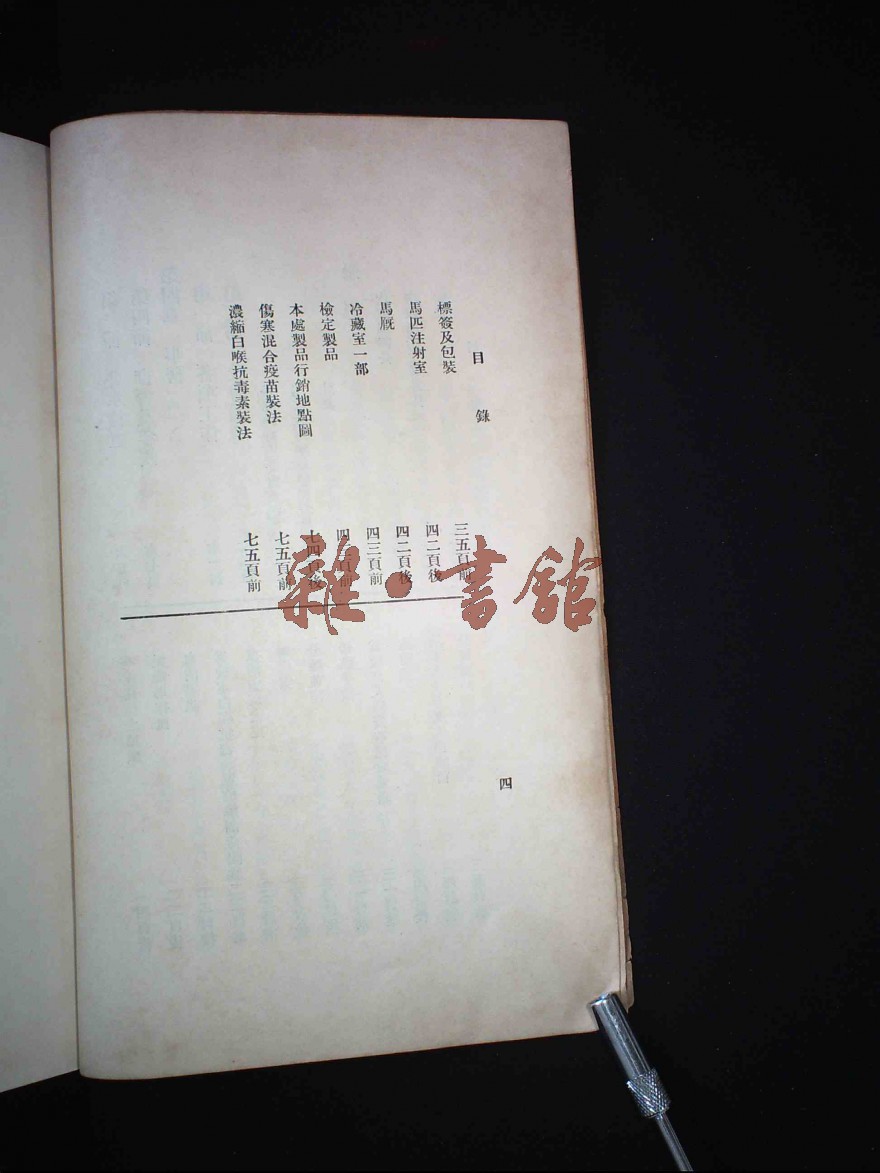 目錄
標簽及包裝 三五頁前
馬匹注射室 四二頁後
馬厩 四二頁後
冷藏室一部 四三頁前
檢定製品 四三頁前
本處製品行銷地點圖 七四頁後
傷寒混合疫苗裝法 七五頁前
濃縮白喉抗毒素裝法 七五頁前
四
雜·書館